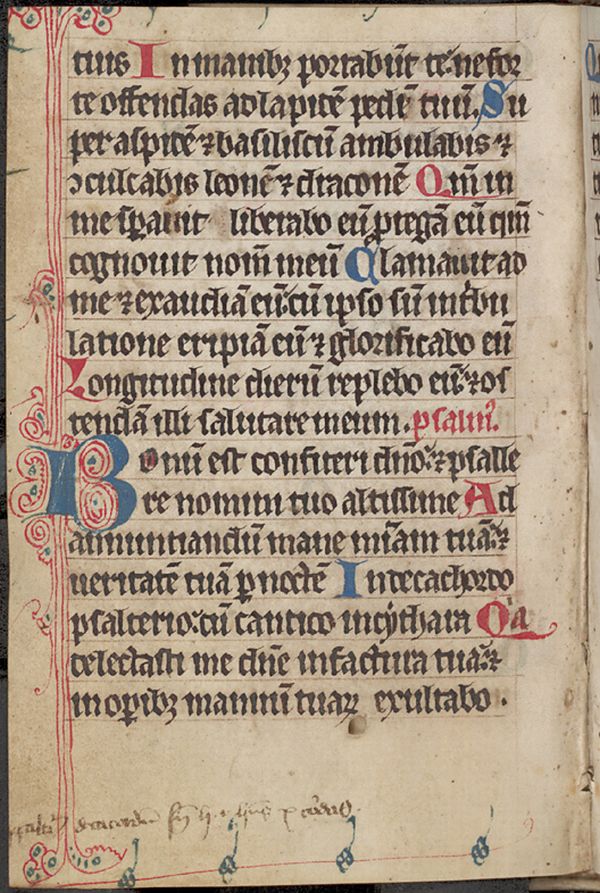 tuis In manibꝫ portabūt te: ne for
te offendas ad lapitē pedē tuū. Su
per aspitē ⁊ basiliscū ambulabis ⁊
ↄculcabis leonē ⁊ draconē Qm̄ in
me sꝑauit liberabo eū ꝓtegā eū qm̄
cognouit nom̄ meū Clamauit ad
me ⁊ exaudiā eū: cū ipso sū in tⁱbu
latione eripiā eū ⁊ glorificabo eū
Longitudine dierū replebo eū: ⁊ os
tendā illi salutare meum. psalmꝰ.
Bonū est confiteri dn̄o: ⁊ psalle
re nomini tuo altissime Ad
annuntiandū mane mīam tuā: ⁊
ueritatē tuā ꝑ noctē In decachordo
psalterio: cū cantico in cythara Qͥa
delectasti me dn̄e in factura tua: ⁊
in oꝑibꝫ manuū tuaꝝ exultabo.